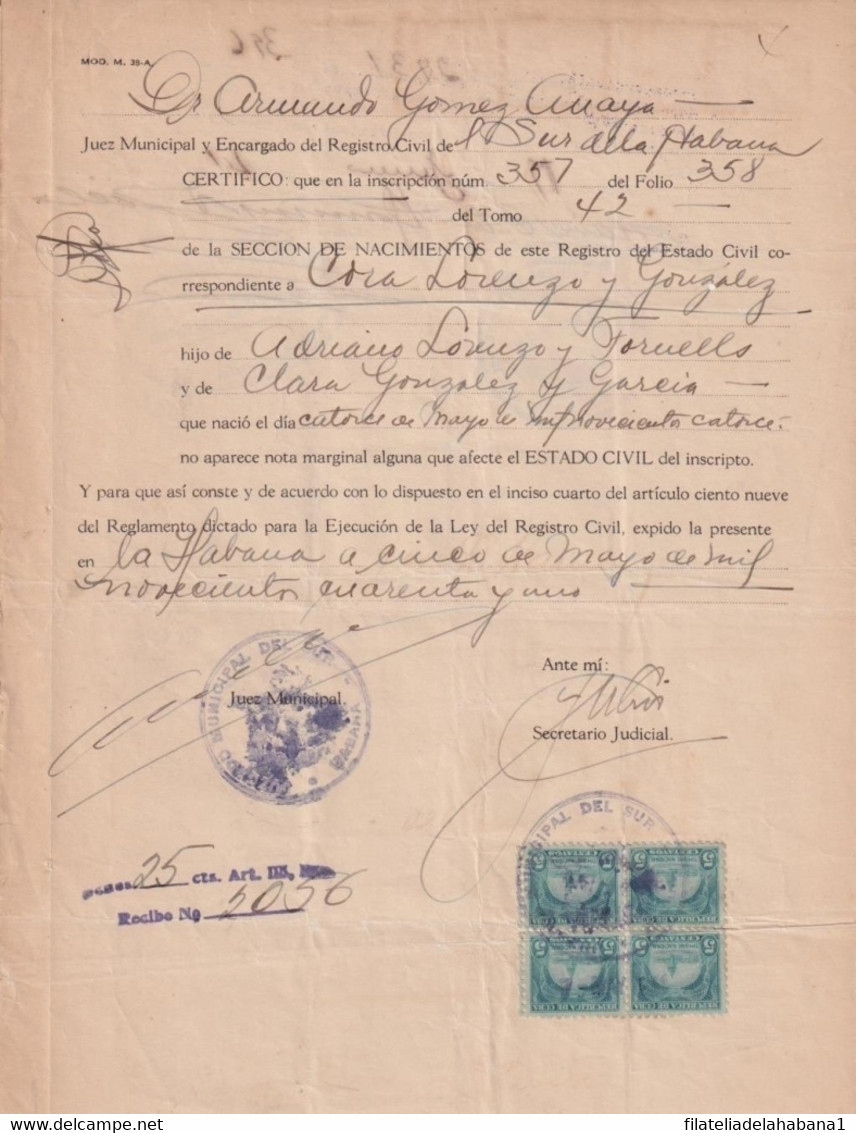 MOD. M. 39-A.
Dr Armando Gomez Anaya
Juez Municipal y Encargado del Registro Civil de l Sur de la Habana
CERTIFICO: que en la inscripción núm. 357 del Folio 358
del Tomo 42
de la SECCION DE NACIMIENTOS de este Registro del Estado Civil co-
rrespondiente a Cora Lorenzo y González
hijo de Adriano Lorenzo y Tornells
y de Clara González y Garcia
que nació el día catorce de Mayo de mil novecientos catorce.
no aparece nota marginal alguna que afecte el ESTADO CIVIL del inscripto.
Y para que así conste y de acuerdo con lo dispuesto en el inciso cuarto del artículo ciento nueve
del Reglamento dictado para la Ejecución de la Ley del Registro Civil, expido la presente
en la Habana a cinco de Mayo de mil
novecientos cuarenta y uno
MUNICIPAL DEL SUR
HABANA
Ante mí:
Juez Municipal.
Secretario Judicial.
25 cts. Art.
Recibo No 5056
DEL SUR
5 CENTAVOS
REPUBLICA DE CUBA
5 CENTAVOS
REPUBLICA DE CUBA
5 CENTAVOS
REPUBLICA DE CUBA
5 CENTAVOS
REPUBLICA DE CUBA
filateliadelahabana1